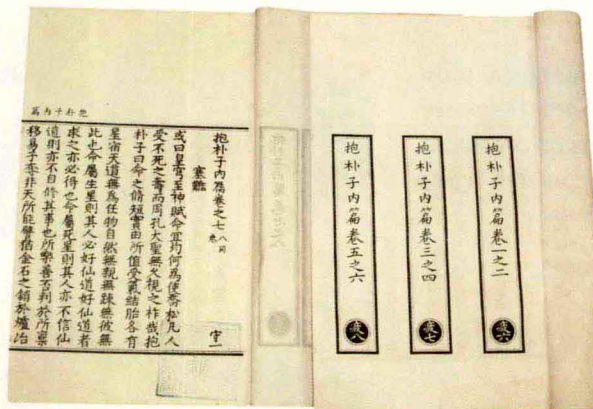 抱朴子內篇卷一之二
疲六
抱朴子內篇卷三之四
疲七
抱朴子內篇卷五之六
疲八
抱朴子內篇卷之七 八同卷
守一
塞難
或曰皇穹至神賦命宜均何為使喬松凡人
受不死之壽而周孔大聖無久視之祚哉抱
朴子曰命之脩短實由所值受氣結胎各有
星宿天道無為任物自然無親無疎無彼無
此也命屬生星則其人必好仙道好仙道者
求之亦必得也命屬死星則其人亦不信仙
道則亦不自修其事也所樂善否判於所稟
移易予奪非天所能譬猶金石之銷於爐冶
抱朴子內篇